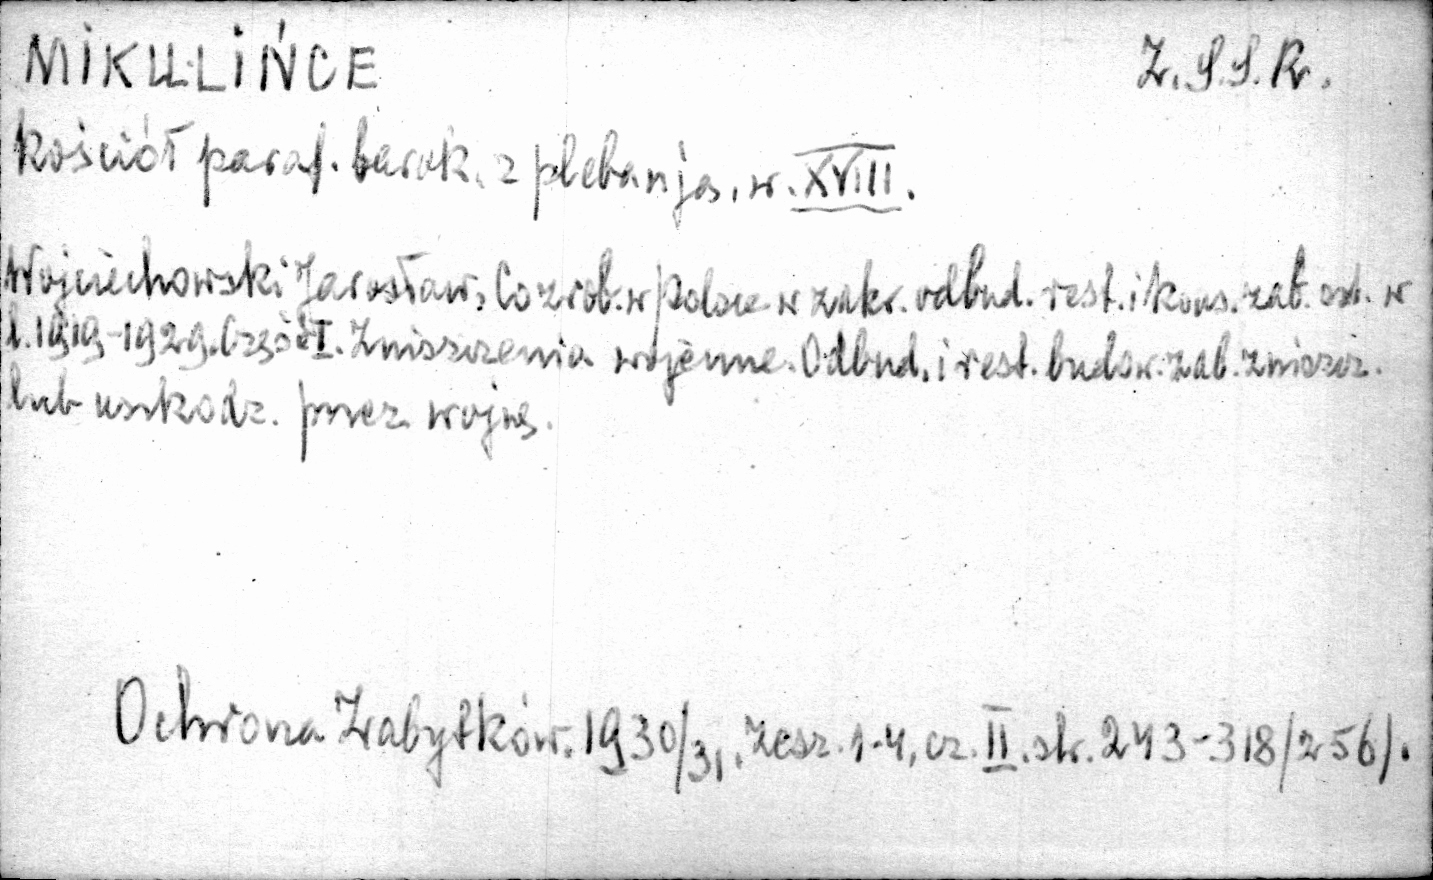 MIKULIŃCE
Z.S.S.R.
kościół paraf. barok. z plebanją, w. XVIII.
Wojciechowski Jarosław, Co zrob. w Polsce w zakr. odbud. rest. i kons. zab. w
l. 1919-1929. Część I. Zniszczenia wojenne. Odbud. i rest. budow. zab. zniszcz.
lub uszkodz. przez wojnę.
Ochrona Zabytków. 1930/31. Zesz. 1-4, cz. II. str. 243-318/256/.